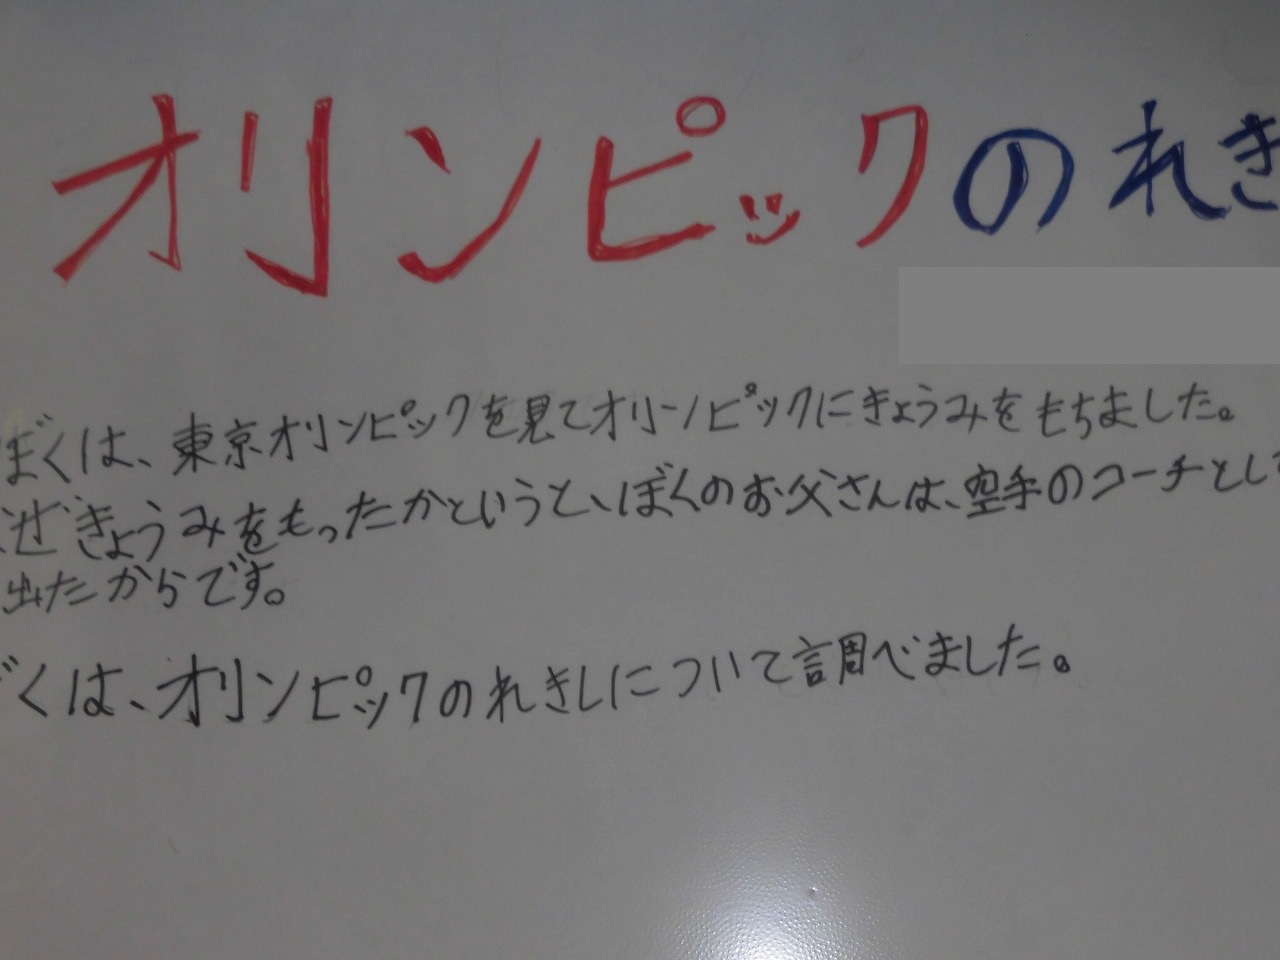 オリンピックのれき
ぼくは、東京オリンピックを見てオリンピックにきょうみをもちました。
ぜきょうみをもったかというと、ぼくのお父さんは、空手のコーチとして
出たからです。
くは、オリンピックのれきしについて調べました。